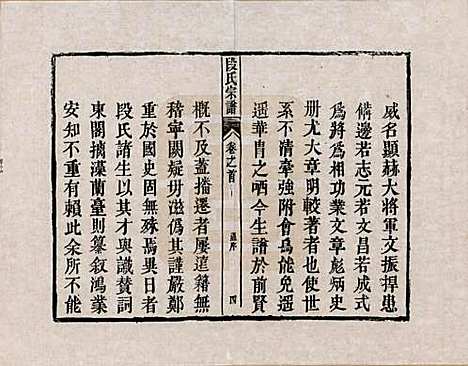 威名顯赫大將軍文振捍患
備邊若志元若文昌若成式
爲將爲相功業文章彪炳史
册尤大章明較著者也使世
系不清牽強附會爲能免遥
遥華胄之哂今生譜於前賢
段氏宗譜
卷之首
譜序
四
概不及蓋播遷者屢遺籍無
稽寧闕疑毋滋僞其謹嚴鄭
重於國史固無殊焉異日者
段氏諸生以其才與識賛詞
東閣摛藻蘭臺則纂叙鴻業
安知不重有賴此余所不能